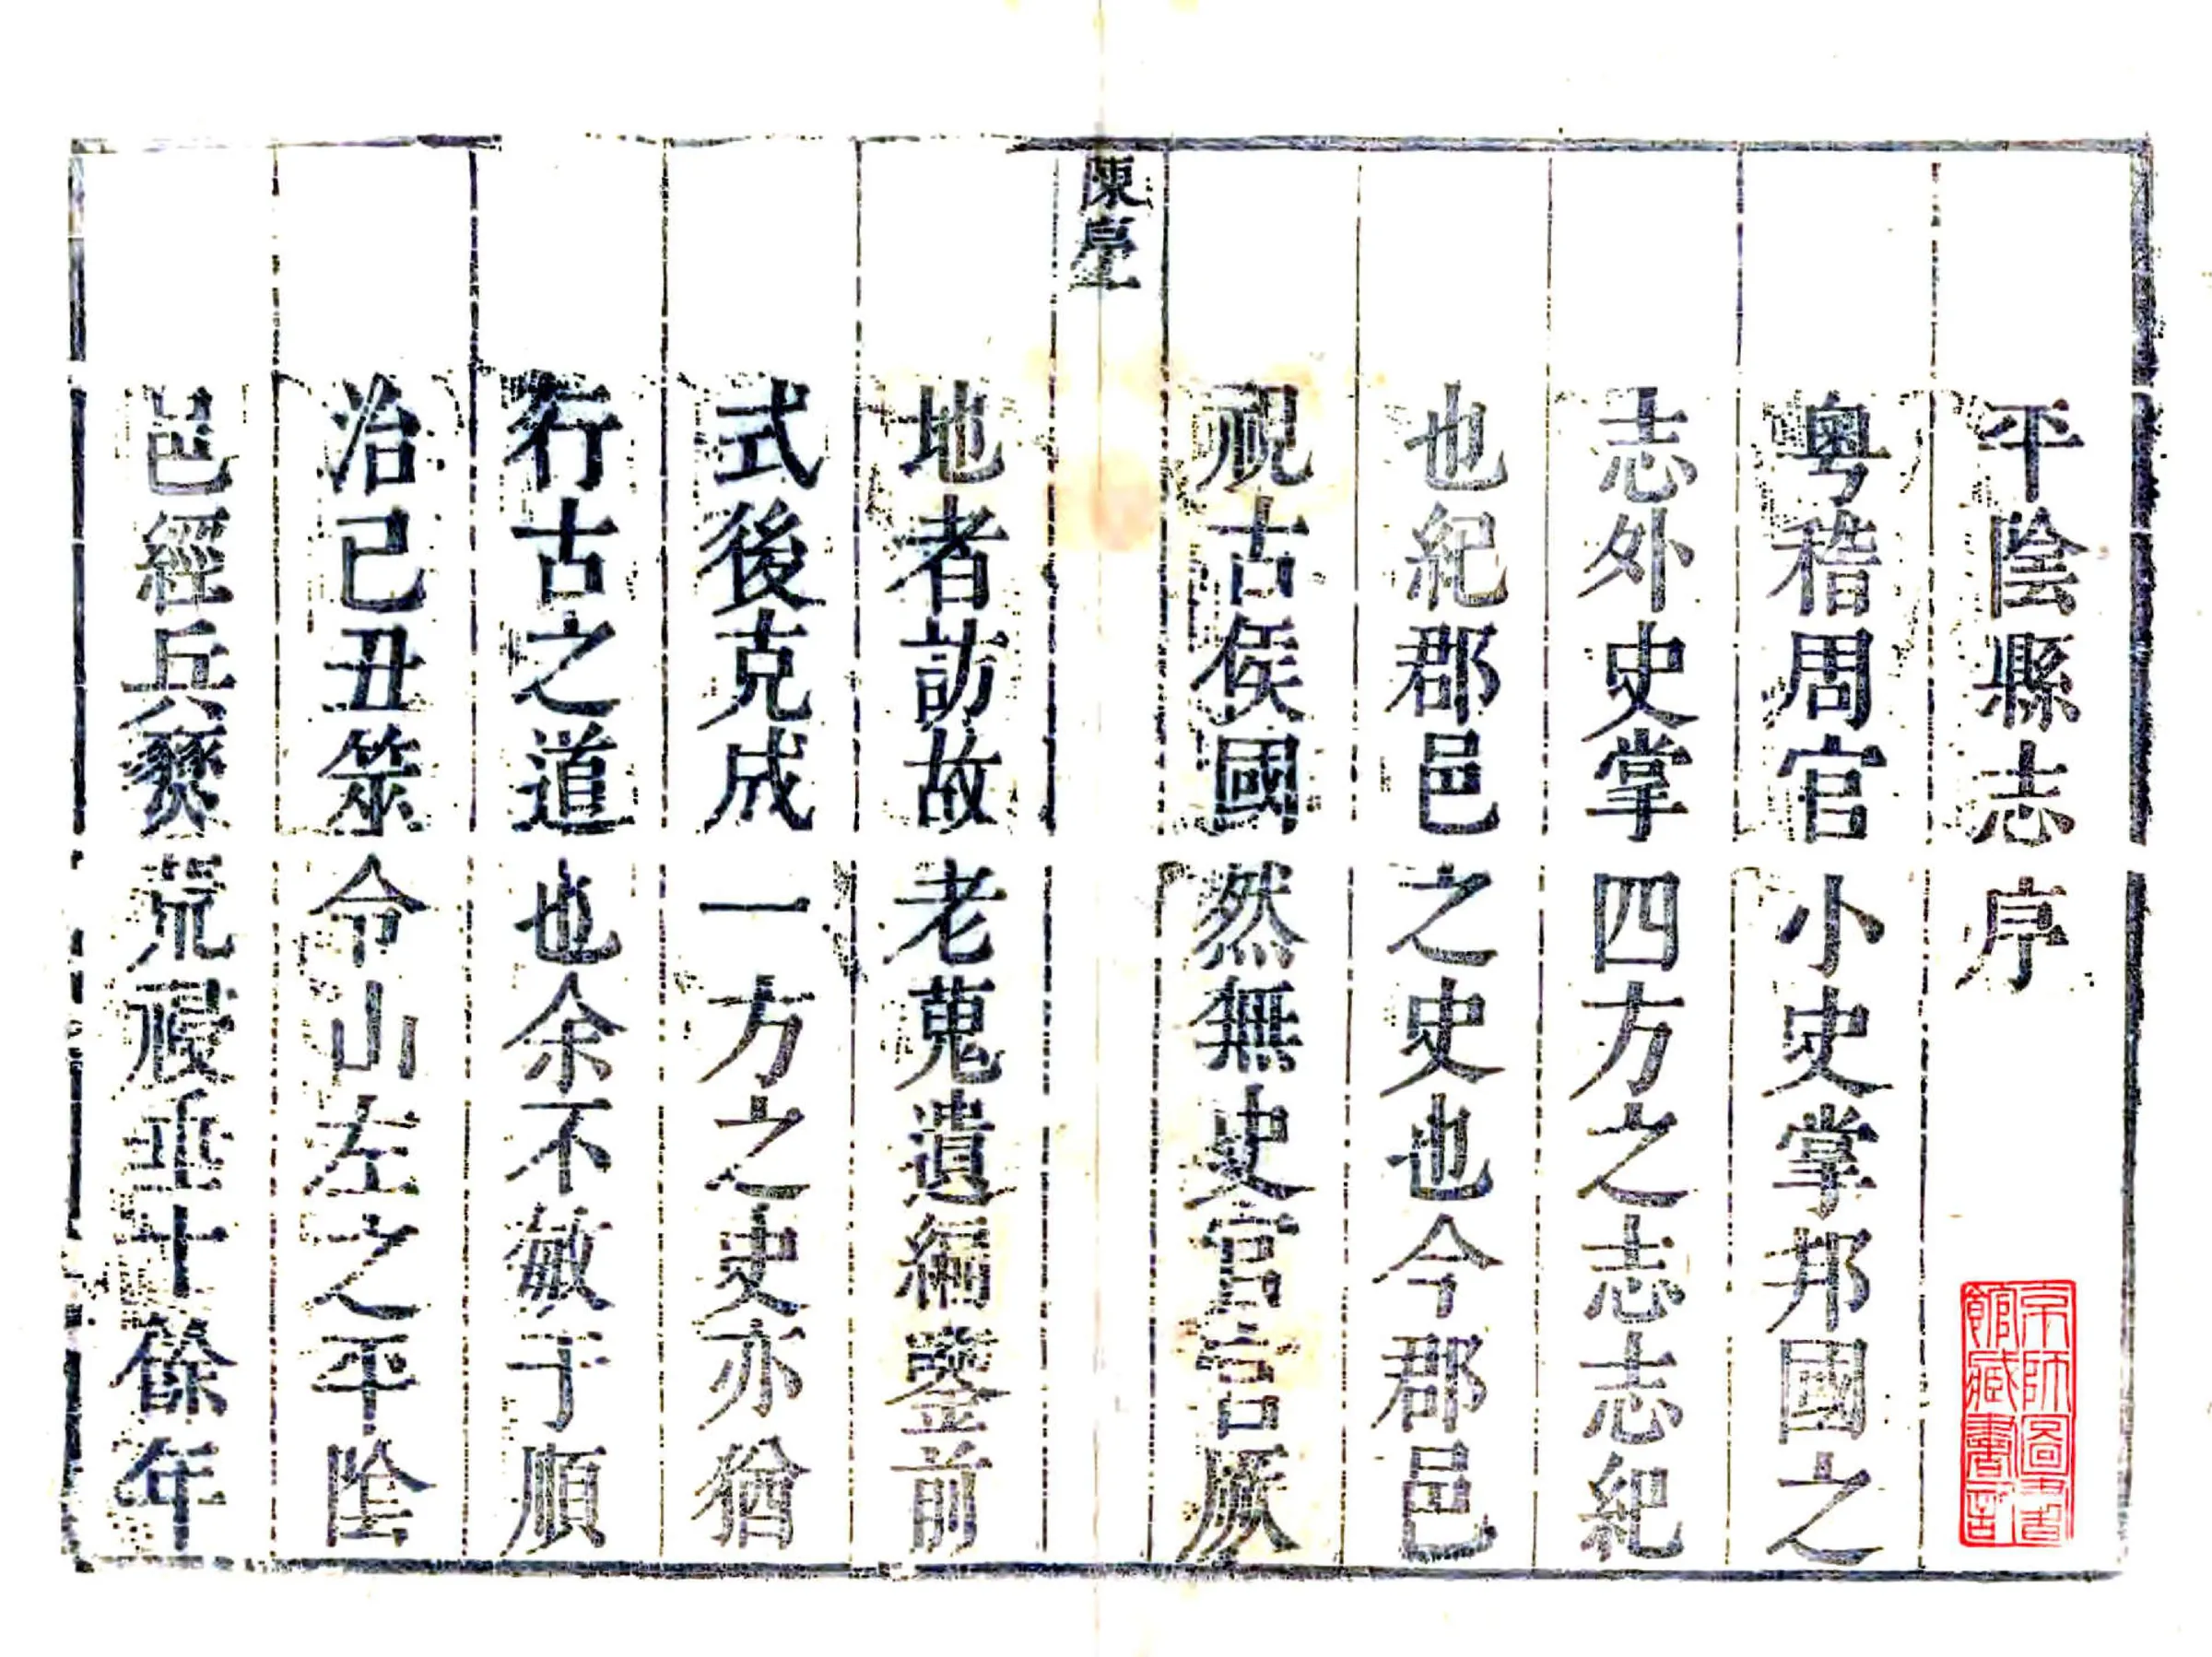 平陰縣志序
粤稽周官小史掌邦國之
志外史掌四方之志志紀
也紀郡邑之史也今郡邑
視古侯國然無史官官厥
地者訪故老蒐遺編鑒前
式後克成一方之史亦猶
行古之道也余不敏于順
治己丑筮令山左之平陰
邑經兵燹荒祲垂十餘年
陳序
京師圖書館藏書記